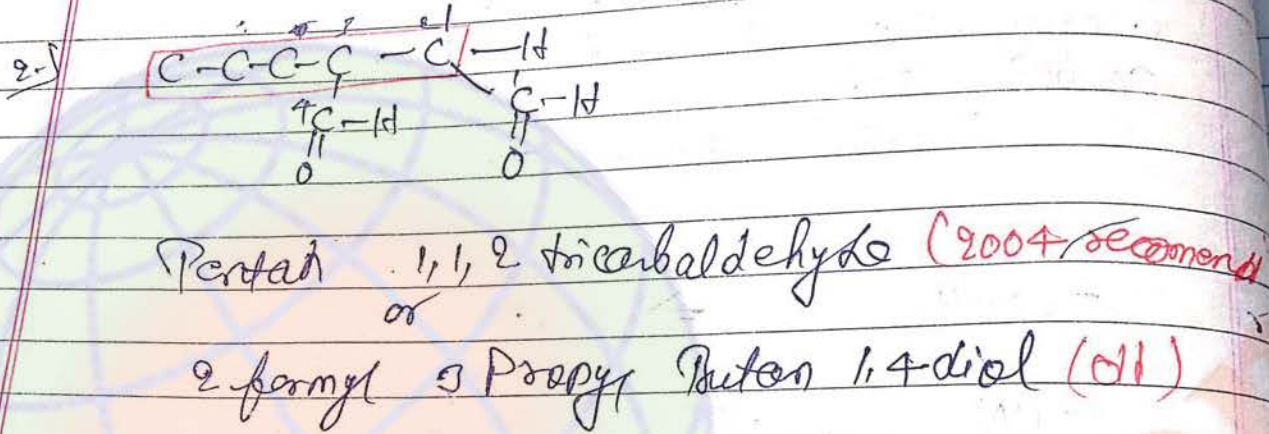 2.
C-C-C-C-C-H
4C-H C-H
O O
Pentan 1,1,2 tricarbaldehyde (2004 recomend
or
2 formyl 3 Propyl Butan 1,4-diol (old)